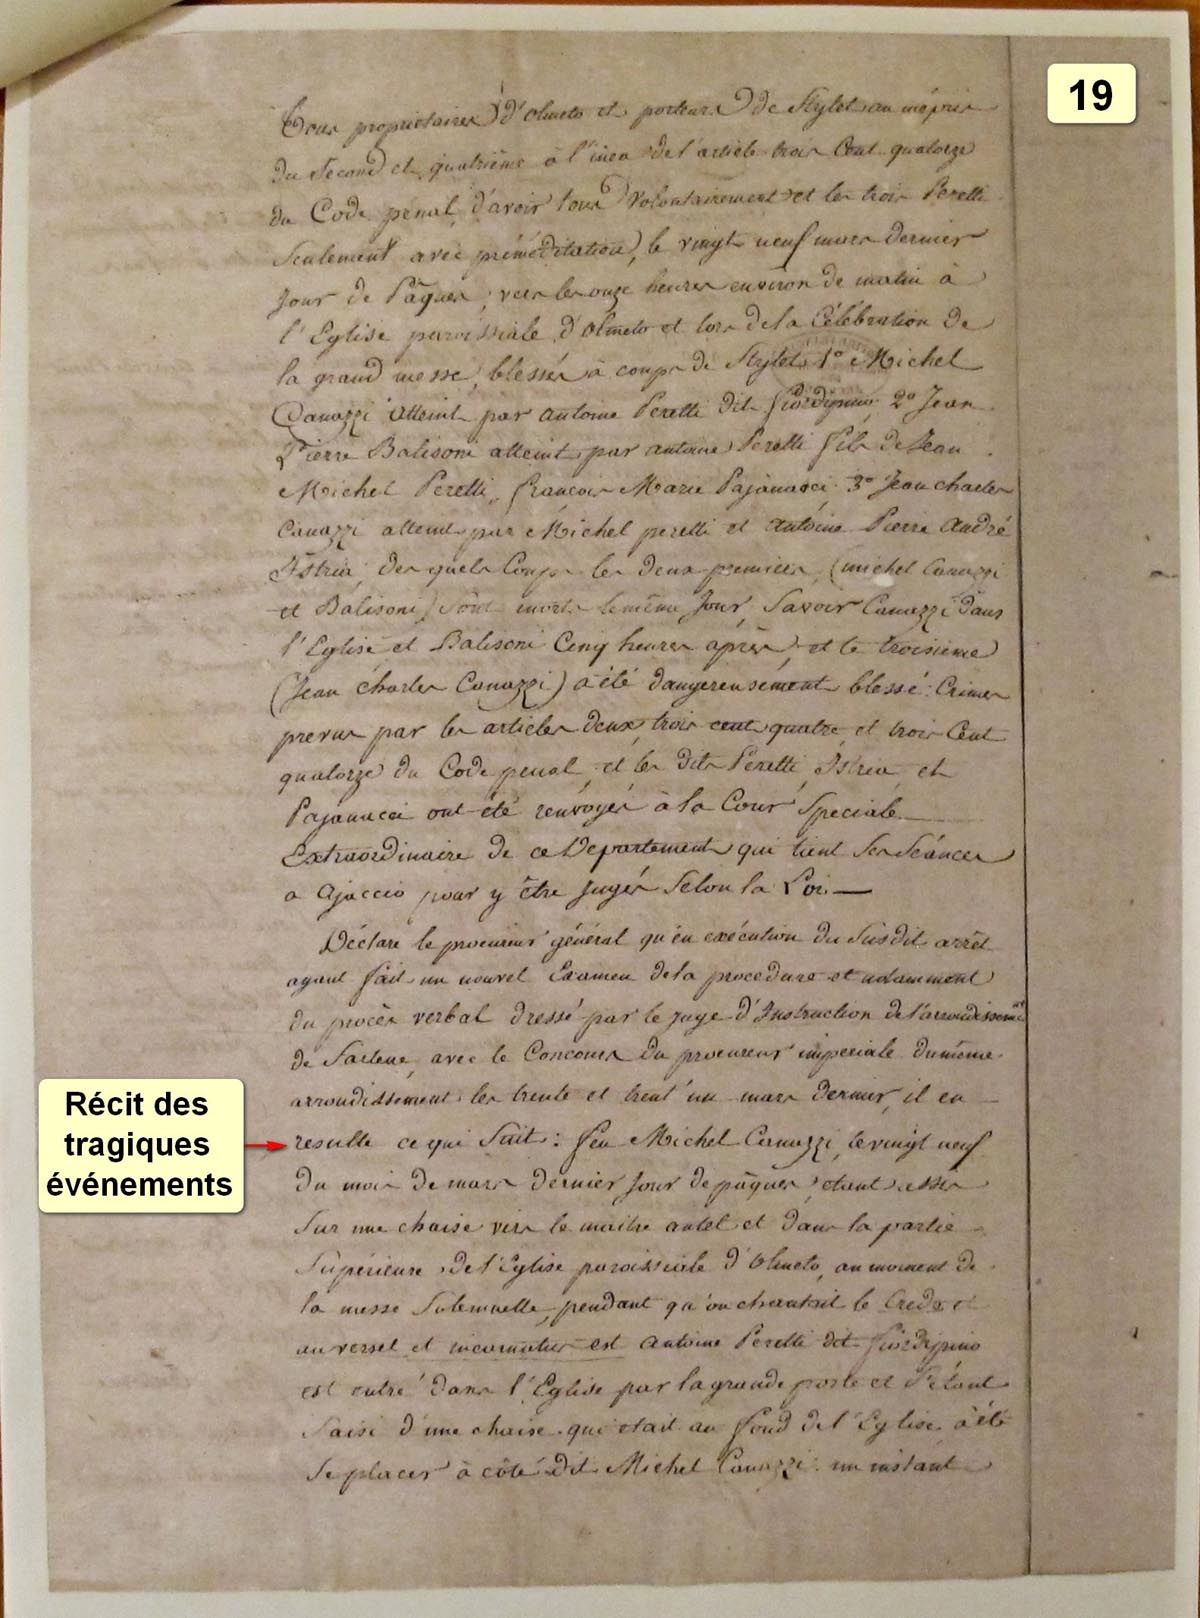 19
Tous propriétaires d'Olmeto et porteurs de Stylet au mépris
du Second et quatrième à l'inea de l'article trois Cent quatorze
du Code penal, d'avoir tous volontairement et les trois Peretti
Seulement avec préméditation, le vingt neuf mars dernier
Jour de Pâques, vers les onze heures environ de matin à
l'Eglise paroissiale d'Olmeto et lors de la Célébration de
la grand messe, blessés à coups de Stylets 1° Michel
Canazzi atteint par antoine Peretti dit 2° Jean
Pierre Balisoni atteint par antoine Peretti fils de Jean
Michel Peretti, françois Marie Pajanacci 3° Jean charles
Canazzi atteint par Michel peretti et antoine Pierre André
Istria, des quels Coups les deux premiers, (michel Canazzi
et Balisoni) sont morts le même Jour, Savoir Canazzi dans
l'Eglise et Balisoni Cinq heures après, et le troisième
(Jean charles Canazzi) a été dangereusement blessé: Crimes
prevus par les articles deux, trois cent quatre, et trois Cent
quatorze du Code penal, et les dits Peretti, Istria, et
Pajanacci ont été renvoyés à la Cour Speciale
Extraordinaire de ce Departement qui tient Ses Séances
a ajaccio pour y être Jugés Selon la Loi.—
Déclare le procureur général qu'en exécution du Susdit arrêt
ayant fait un nouvel Examen de la procedure et notamment
du procès verbal dressé par le Juge d'Instruction de l'arrondissement
de Sartene, avec le Concours du procureur imperiale du même
arrondissement les trente et trent'un mars dernier, il en
Récit des
tragiques
événements
resulte ce qui Suit: feu Michel Canazzi, le vingt neuf
du mois de mars dernier Jour de pâques, étant assis
Sur une chaise vers le maitre autel et dans la partie
Supérieure de l'Eglise paroissiale d'Olmeto, au moment de
la messe Solemnelle, pendant qu'on chantait le Credo et
au verset et incarnatus est antoine Peretti dit
est entré dans l'Eglise par la grande porte et S'étant
Saisi d'une chaise qui était au fond de l'Eglise, a été
Se placer à côté dit Michel Canazzi: un instant